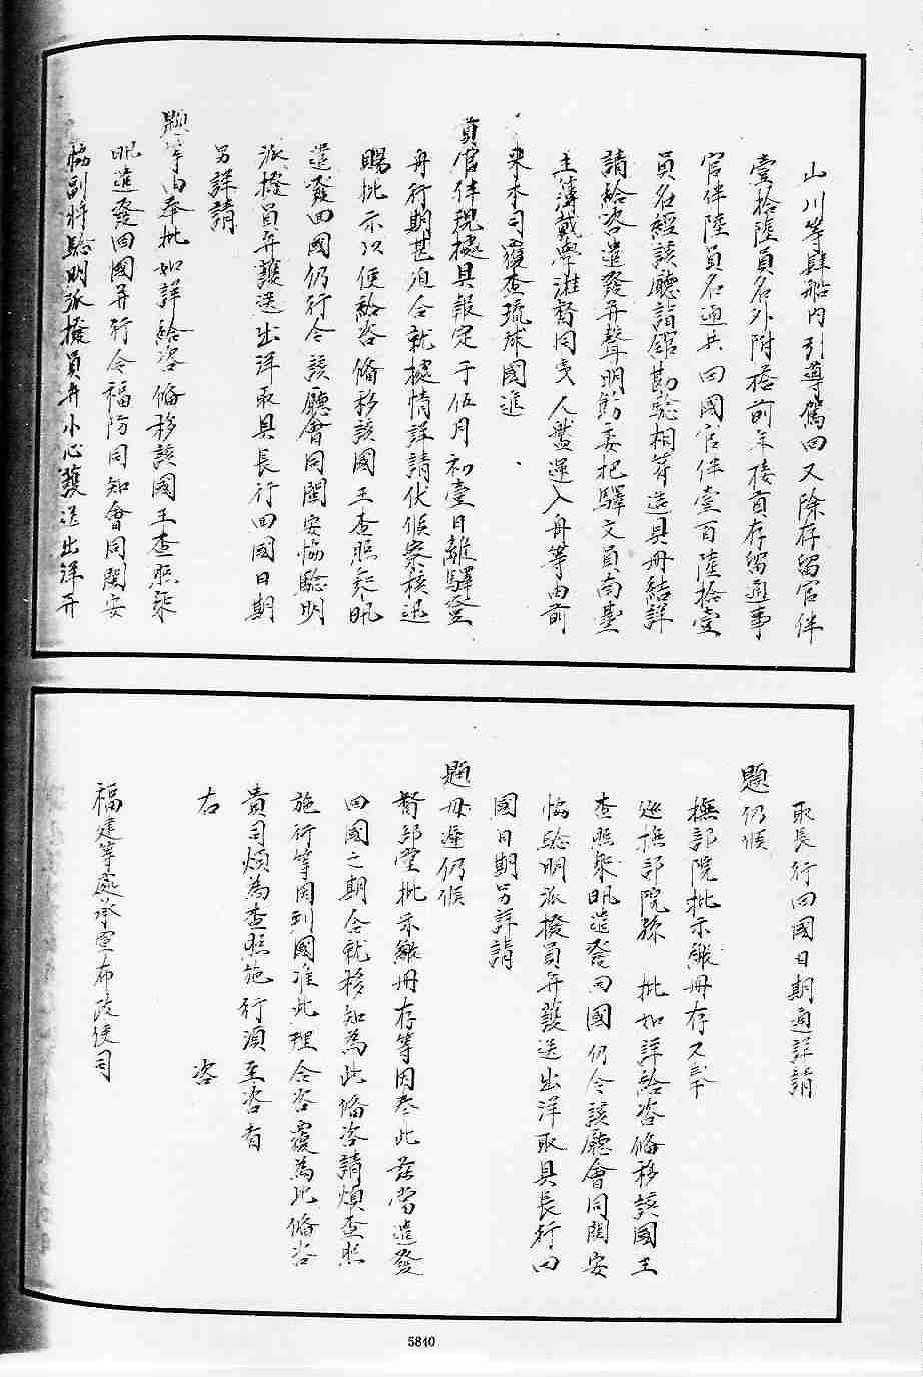 山川等肆船內引導駕回又除存留官伴
壹拾陸員名外附搭前年接貢存留通事
官伴陸員名通共回國官伴壹百陸拾壹
員名經該廳詣館勘驗相符造具冊結詳
請給咨遣發并聲明飭委把驛文員南臺
主薄戴學淮督同夷人盤運入舟等由前
來本司覆查琉球國進
貢官伴現據具報定于伍月初壹日離驛登
舟行期甚迫合就據情詳請伏候察核迅
賜批示以便給咨備移該國王查照先眖
遣發回國仍行令該廳會同閩安協驗明
派撥員弁護送出洋取具長行回國日期
另詳請
題等由奉批如詳給咨備移該國王查照來
眖遣發回國并行令福防同知會同閩安
協副將驗明派撥員弁小心護送出洋并
取長行回國日期通詳請
題仍候
撫部院批示繳冊存又奉
巡撫部院孫 批如詳給咨備移該國王
查照來眖遣發回國仍令該廳會同閩安
協驗明派撥員弁護送出洋取具長行回
國日期另詳請
題毋遲仍候
督部堂批示繳冊存等因奉此茲當遣發
回國之期合就移知為此備咨請煩查照
施行等因到國准此理合咨覆為此備咨
貴司煩為查照施行須至咨者
右 咨
福建等處承宣布政使司
5840